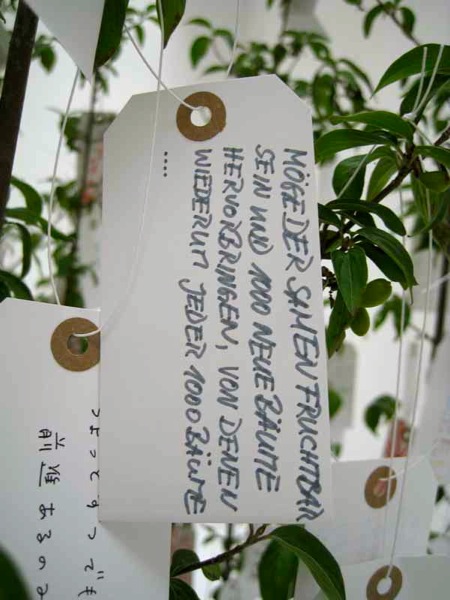 MÖGE DER SAMEN FRUCHTBAR
SEIN UND 1000 NEUE BÄUME
HERVORBRINGEN, VON DENEN
WIEDERUM JEDER 1000 BÄUME
...
でも
あるの